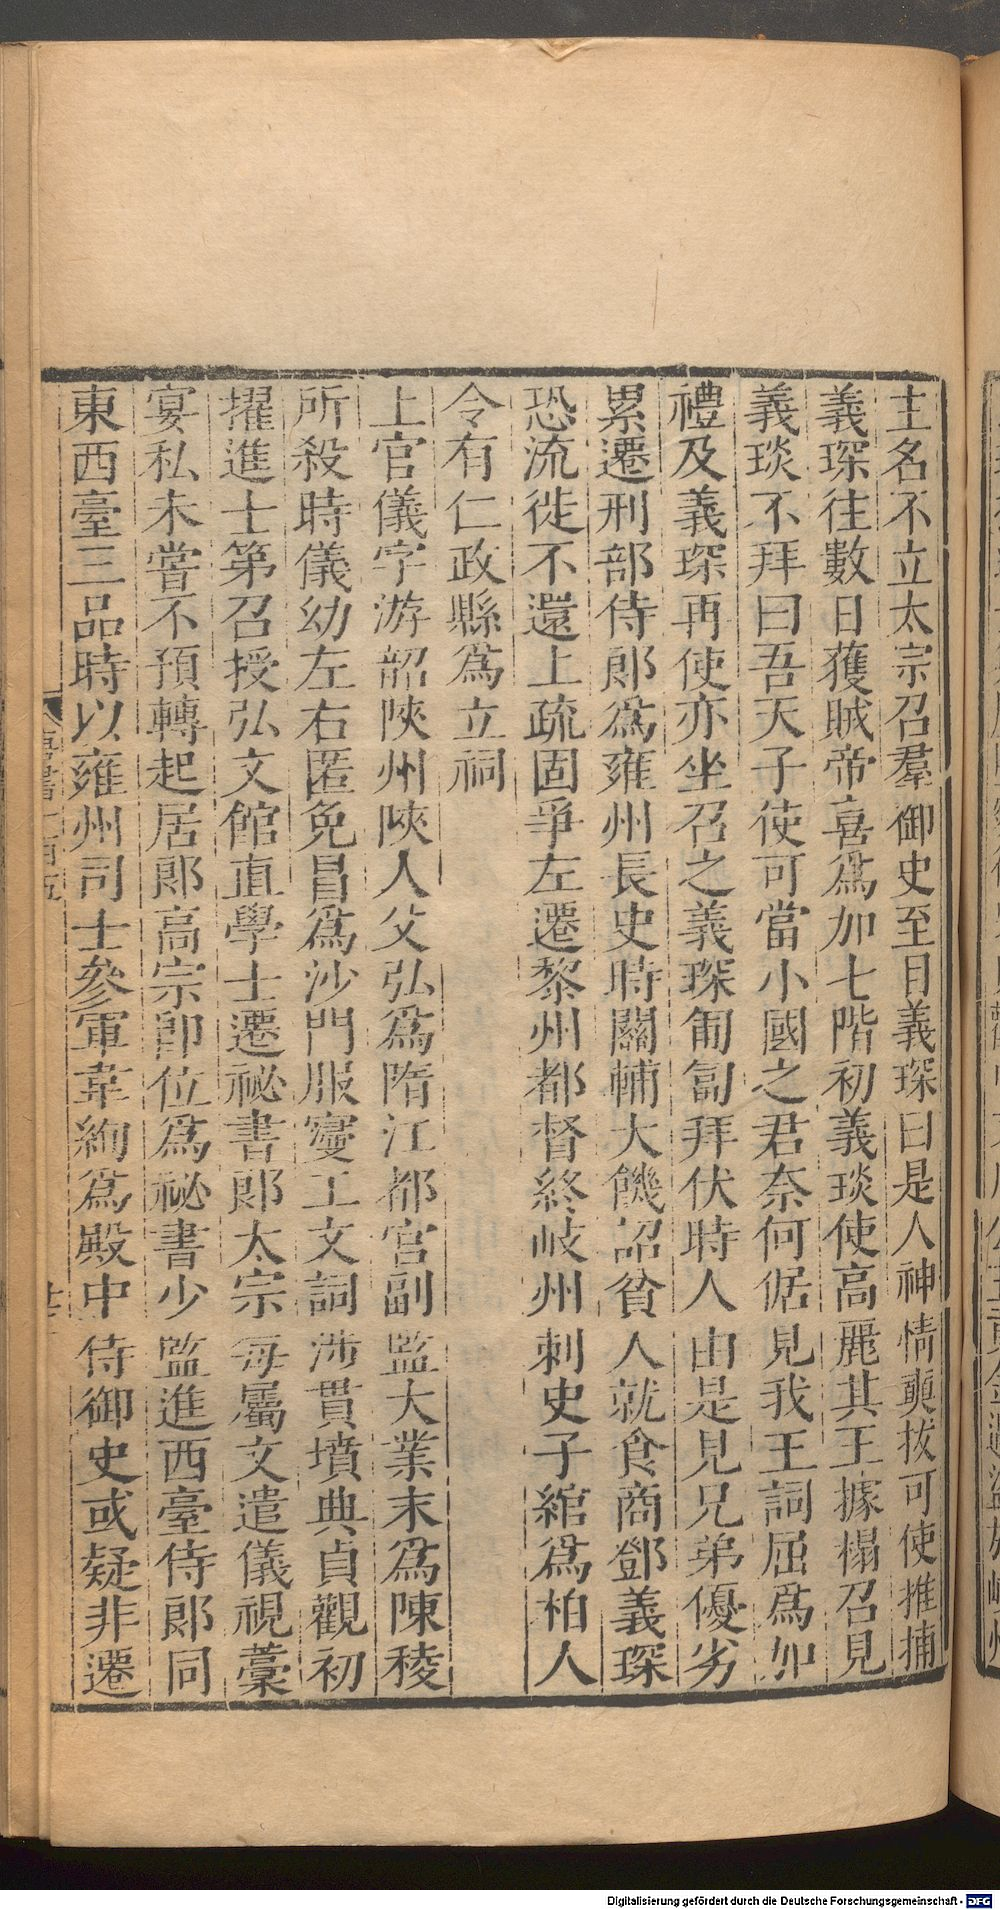 主名不立太宗召羣御史至目義琛曰是人神情爽拔可使推捕
義琛往數日獲賊帝喜爲加七階初義琰使高麗其王據榻召見
義琰不拜曰吾天子使可當小國之君奈何倨見我王詞屈爲加
禮及義琛再使亦坐召之義琛匍匐拜伏時人由是見兄弟優劣
累遷刑部侍郎爲雍州長史時關輔大饑詔貧人就食商鄧義琛
恐流徙不還上疏固爭左遷黎州都督終岐州刺史子綰爲柏人
令有仁政縣爲立祠
上官儀字游韶陝州陝人父弘爲隋江都宮副監大業末爲陳稜
所殺時儀幼左右匿免冒爲沙門服寖工文詞涉貫墳典貞觀初
擢進士第召授弘文館直學士遷祕書郎太宗每屬文遣儀視藁
宴私未嘗不預轉起居郎高宗卽位爲祕書少監進西臺侍郎同
東西臺三品時以雍州司士參軍韋絢爲殿中侍御史或疑非遷
Digitalisierung gefördert durch die Deutsche Forschungsgemeinschaft - DFG